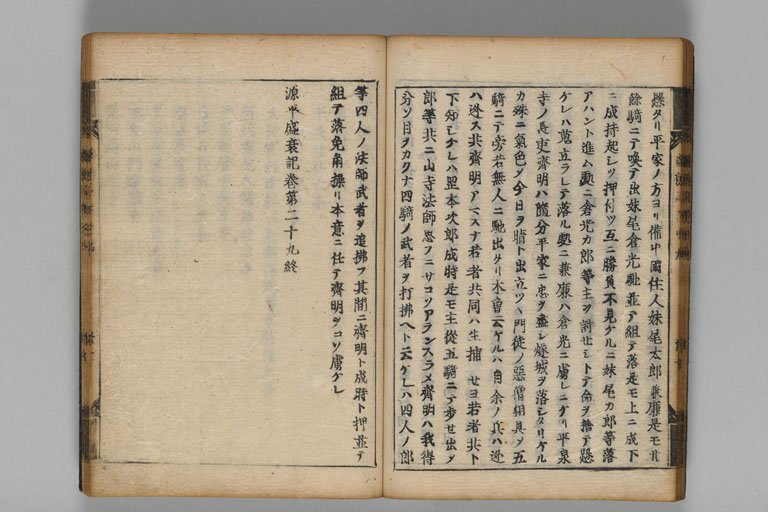 懸タリ平家ノ方ヨリ備中國住人妹尾太郎兼康是モ
餘騎ニテ喚テ出妹尾倉光馳並テ組テ落是モ上ニ成下
ニ成持起シツ押付ツ互ニ勝負不見ケルニ妹尾カ郎等落
アハント進ム處ニ倉光カ郎等主ヲ討セシトテ命ヲ捨テ懸
ケレハ蒐立ラレテ落ル處ニ兼康ハ倉光ニ虜レニケリ平泉
寺ノ長吏齊明ハ隨分平家ニ忠ヲ盡シ燧城ヲ落シタリケル
カ殊ニ氣色メ今日ヲ晴ト出立ツヽ門徒ノ惡僧相具メ五
騎ニテ旁若無人ニ馳出タリ木曽云ケルハ自余ノ兵ハ逃
ハ逃ス共齊明アマスナ若者共同ハ生捕セヨ若者共ト
下知シケレハ岡本次郎成時是モ主從五騎ニテ歩セ出ノ
郎等共ニ山寺法師思フニサコソアランスラメ齊明ハ我得
分ソ目ヲカクナ四騎ノ武者ヲ打拂ヘト云ケレハ四人ノ郎
等四人ノ法師武者ヲ追拂フ其間ニ齊明ト成時ト押並テ
組テ落免角操リ本意ニ任テ齊明ヲコソ虜ケレ
源平盛衰記巻第二十九終